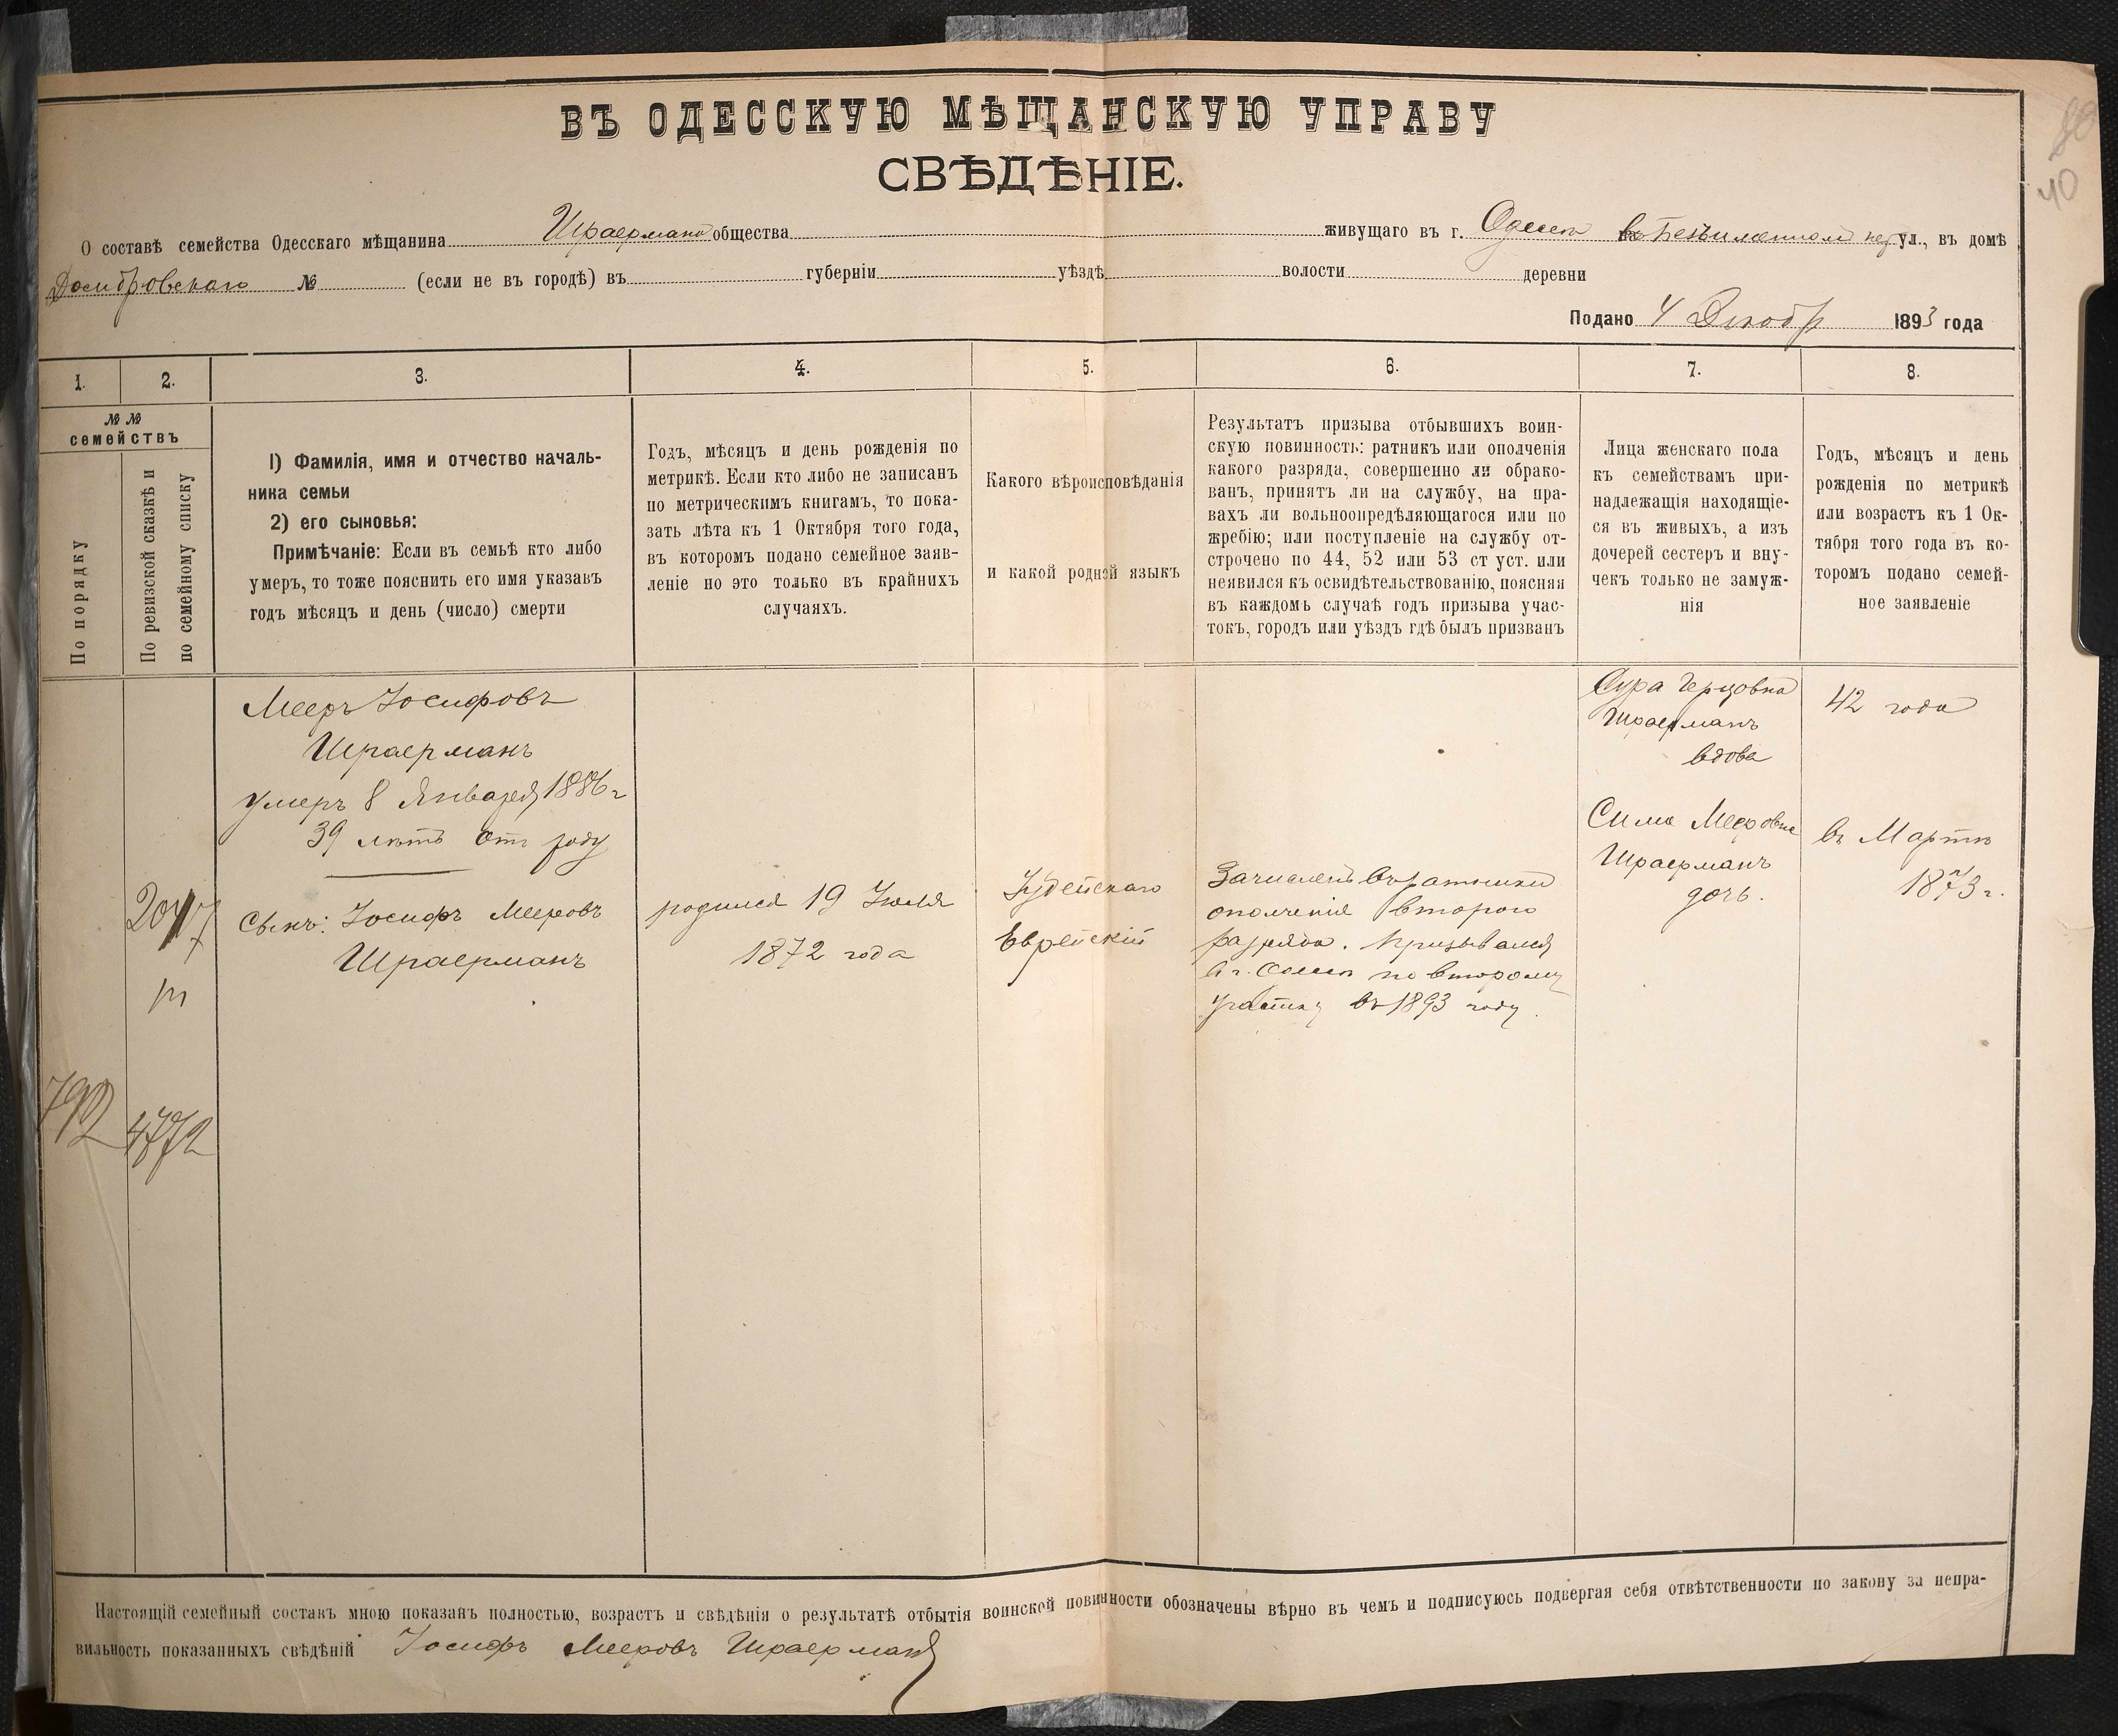 ВЪ ОДЕССКУЮ МѢЩАНСКУЮ УПРАВУ
СВѢДѢНІЕ.
40
О составѣ семейства Одесскаго мѣщанина Шраермана общества живущаго въ г. Одессѣ въ Безъименномъ пер ул., въ домѣ
Домбровскаго № (если не въ городѣ) въ губерніи уѣздѣ волости деревни
Подано 4 Декабр 1893 года
1. 2. 3. 4. 5. 6. 7. 8.
№ №
семействъ
По порядку
По ревизской сказкѣ и
по семейному списку
1) Фамилія, имя и отчество началь-
ника семьи
2) его сыновья:
Примѣчаніе: Если въ семьѣ кто либо
умеръ, то тоже пояснить его имя указавъ
годъ мѣсяцъ и день (число) смерти
Годъ, мѣсяцъ и день рожденія по
метрикѣ. Если кто либо не записанъ
по метрическимъ книгамъ, то пока-
зать лѣта къ 1 Октября того года,
въ которомъ подано семейное заяв-
леніе но это только въ крайнихъ
случаяхъ.
Какого вѣроисповѣданія
и какой родной языкъ
Результатъ призыва отбывшихъ воин-
скую повинность: ратникъ или ополченія
какого разряда, совершенно ли обрако-
ванъ, принятъ ли на службу, на пра-
вахъ ли вольноопредѣляющагося или по
жребію; или поступленіе на службу от-
строчено по 44, 52 или 53 ст уст. или
неявился къ освидѣтельствованію, поясняя
въ каждомъ случаѣ годъ призыва учас-
токъ, городъ или уѣздъ гдѣ былъ призванъ
Лица женскаго пола
къ семействамъ при-
надлежащія находящіе-
ся въ живыхъ, а изъ
дочерей сестеръ и вну-
чекъ только не замуж-
нія
Годъ, мѣсяцъ и день
рожденія по метрикѣ
или возрастъ къ 1 Ок-
тября того года въ ко-
торомъ подано семей-
ное заявленіе
Мееръ Іосифовъ
Шраерманъ
умеръ 8 Января 1886 г
39 лѣтъ отъ роду
Сынъ: Іосифъ Мееровъ
Шраерманъ
родился 19 Іюля
1872 года
Іудейскаго
Еврейскій
Зачисленъ въ ратники
ополченія второго
разряда. Призывался
въ г. Одессѣ по второму
участку въ 1893 году.
Сура Герцовна
Шраерманъ
вдова
42 года
Сима Мееровна
Шраерманъ
дочь.
въ Мартѣ
1873 г.
2047
792
4772
Настоящій семейный составъ мною показанъ полностью, возрастъ и свѣдѣнія о результатѣ отбытія воинской повинности обозначены вѣрно въ чемъ и подписуюсь подвергая себя отвѣтственности по закону за непра-
вильность показанныхъ свѣдѣній Іосифъ Мееровъ Шраерманъ